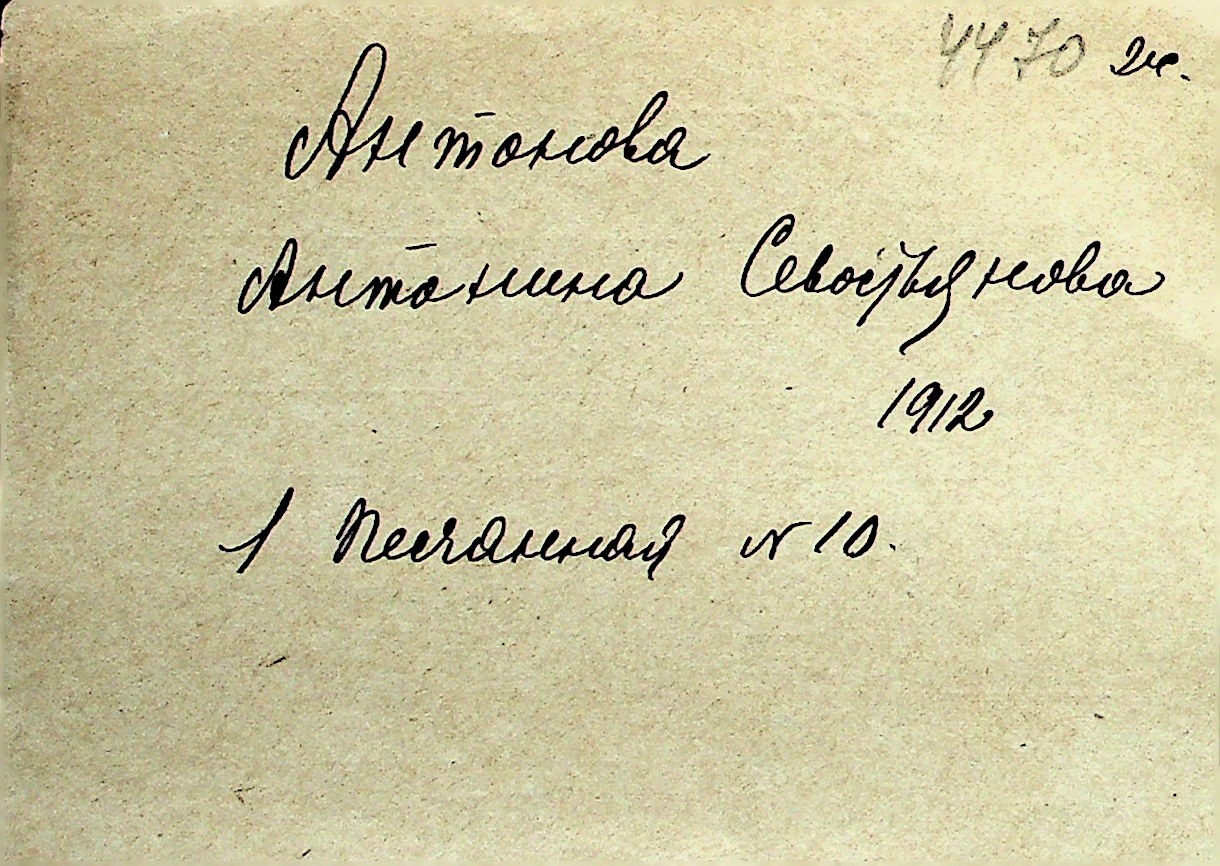 4470 ж.
Антонова
Антонина Севостьянова
1912
1 Песчанная N 10.